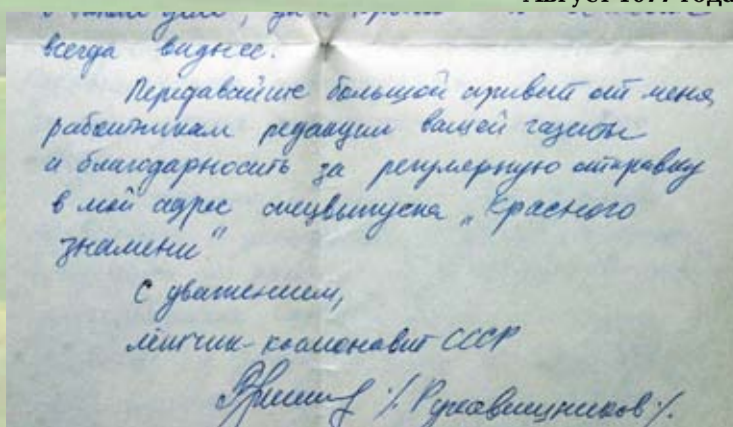 Август 1977 года
всегда виднее.
Передавайте большой привет от меня
работникам редакции вашей газеты
и благодарность за регулярную отправку
в мой адрес спецвыпуска „Красного
знамени"
С уважением,
лётчик-космонавт СССР
/. Рукавишников /.